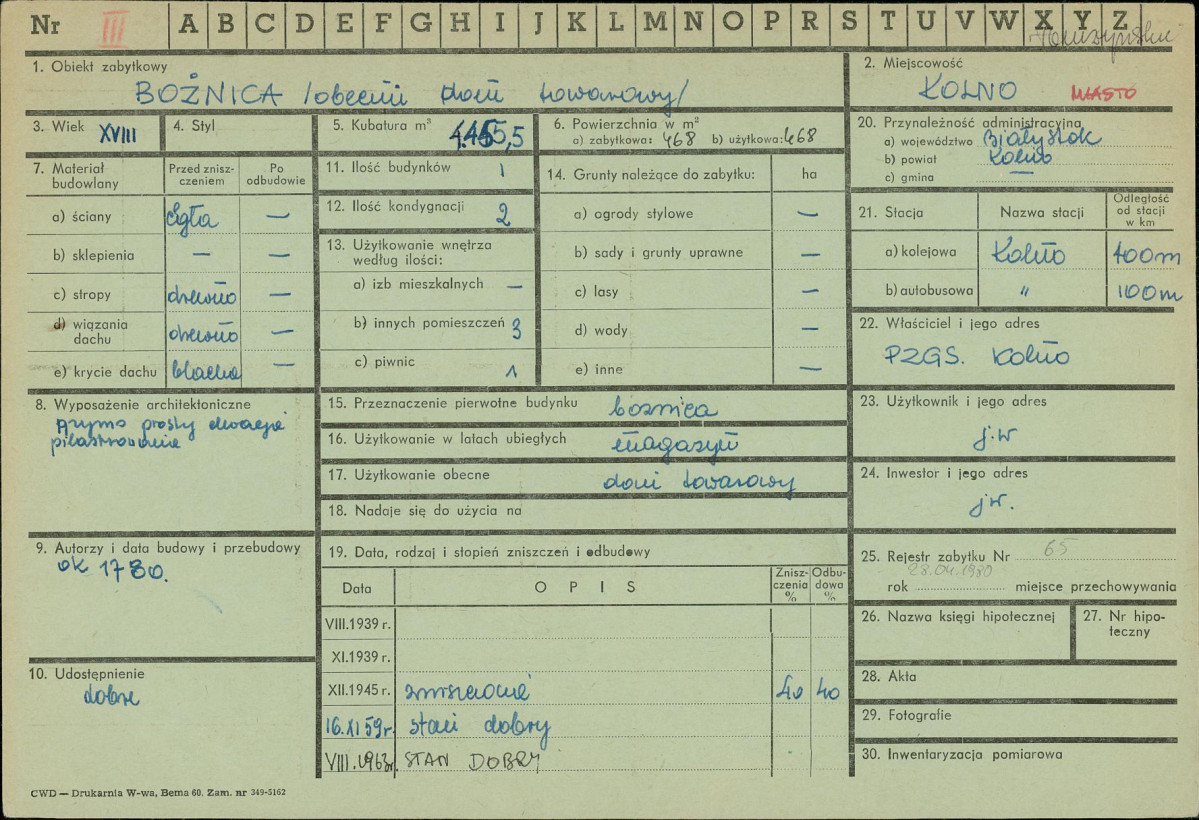 Nr III A B C D E F G H I J K L M N O P R S T U V W X Y Z
1. Obiekt zabytkowy
BOŻNICA /obecnie dom towarowy/
2. Miejscowość
KOLNO MIASTO
3. Wiek XVIII
4. Styl
5. Kubatura m³ 4.455,5
6. Powierzchnia w m²
a) zabytkowa: 468 b) użytkowa: 468
20. Przynależność administracyjna
a) województwo Białystok
b) powiat Kolno
c) gmina —
7. Materiał budowlany
Przed zniszczeniem
Po odbudowie
a) ściany cegła —
b) sklepienia — —
c) stropy drewno —
d) wiązania dachu drewno —
e) krycie dachu blacha —
11. Ilość budynków 1
12. Ilość kondygnacji 2
13. Użytkowanie wnętrza
według ilości:
a) izb mieszkalnych —
b) innych pomieszczeń 3
c) piwnic 1
14. Grunty należące do zabytku: ha
a) ogrody stylowe —
b) sady i grunty uprawne —
c) lasy —
d) wody —
e) inne —
21. Stacja
Nazwa stacji
Odległość od stacji w km
a) kolejowa Kolno 400m
b) autobusowa " 100m
22. Właściciel i jego adres
PZGS. Kolno
8. Wyposażenie architektoniczne
prosty
pilastrowanie
15. Przeznaczenie pierwotne budynku bożnica
16. Użytkowanie w latach ubiegłych magazyn
17. Użytkowanie obecne dom towarowy
18. Nadaje się do użycia na
23. Użytkownik i jego adres
j.w
24. Inwestor i jego adres
jw.
9. Autorzy i data budowy i przebudowy
ok 1780.
10. Udostępnienie
dobre
19. Data, rodzaj i stopień zniszczeń i odbudowy
Data OPIS Zniszczenia % Odbudowa %
VIII.1939 r.
XI.1939 r.
XII.1945 r. zniszczone 40 40
16.XI 59 r. stan dobry
VIII.1963 r. STAN DOBRY
25. Rejestr zabytku Nr 65
28.04.1980
rok miejsce przechowywania
26. Nazwa księgi hipotecznej
27. Nr hipoteczny
28. Akta
29. Fotografie
30. Inwentaryzacja pomiarowa
CWD — Drukarnia W-wa, Bema 60. Zam. nr 349-5162